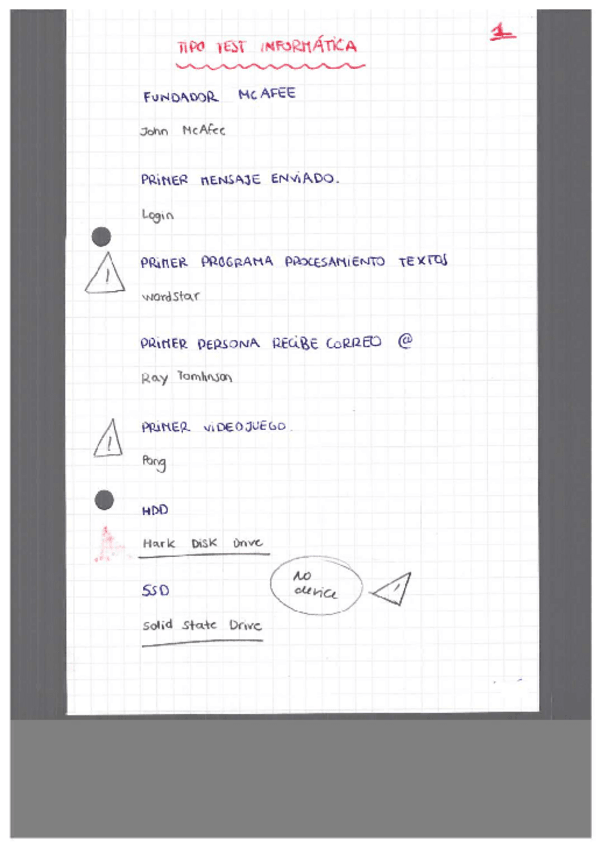 1
TIPO TEST INFORMÁTICA
FUNDADOR MCAFEE
John McAfee
PRIMER MENSAJE ENVIADO.
Login
!
PRIMER PROGRAMA PROCESAMIENTO TEXTOS
wordstar
PRIMER PERSONA RECIBE CORREO @
Ray Tomlinson
!
PRIMER VIDEOJUEGO.
Pong
HDD
Hark Disk Drive
SSD
no
device
!
Solid State Drive